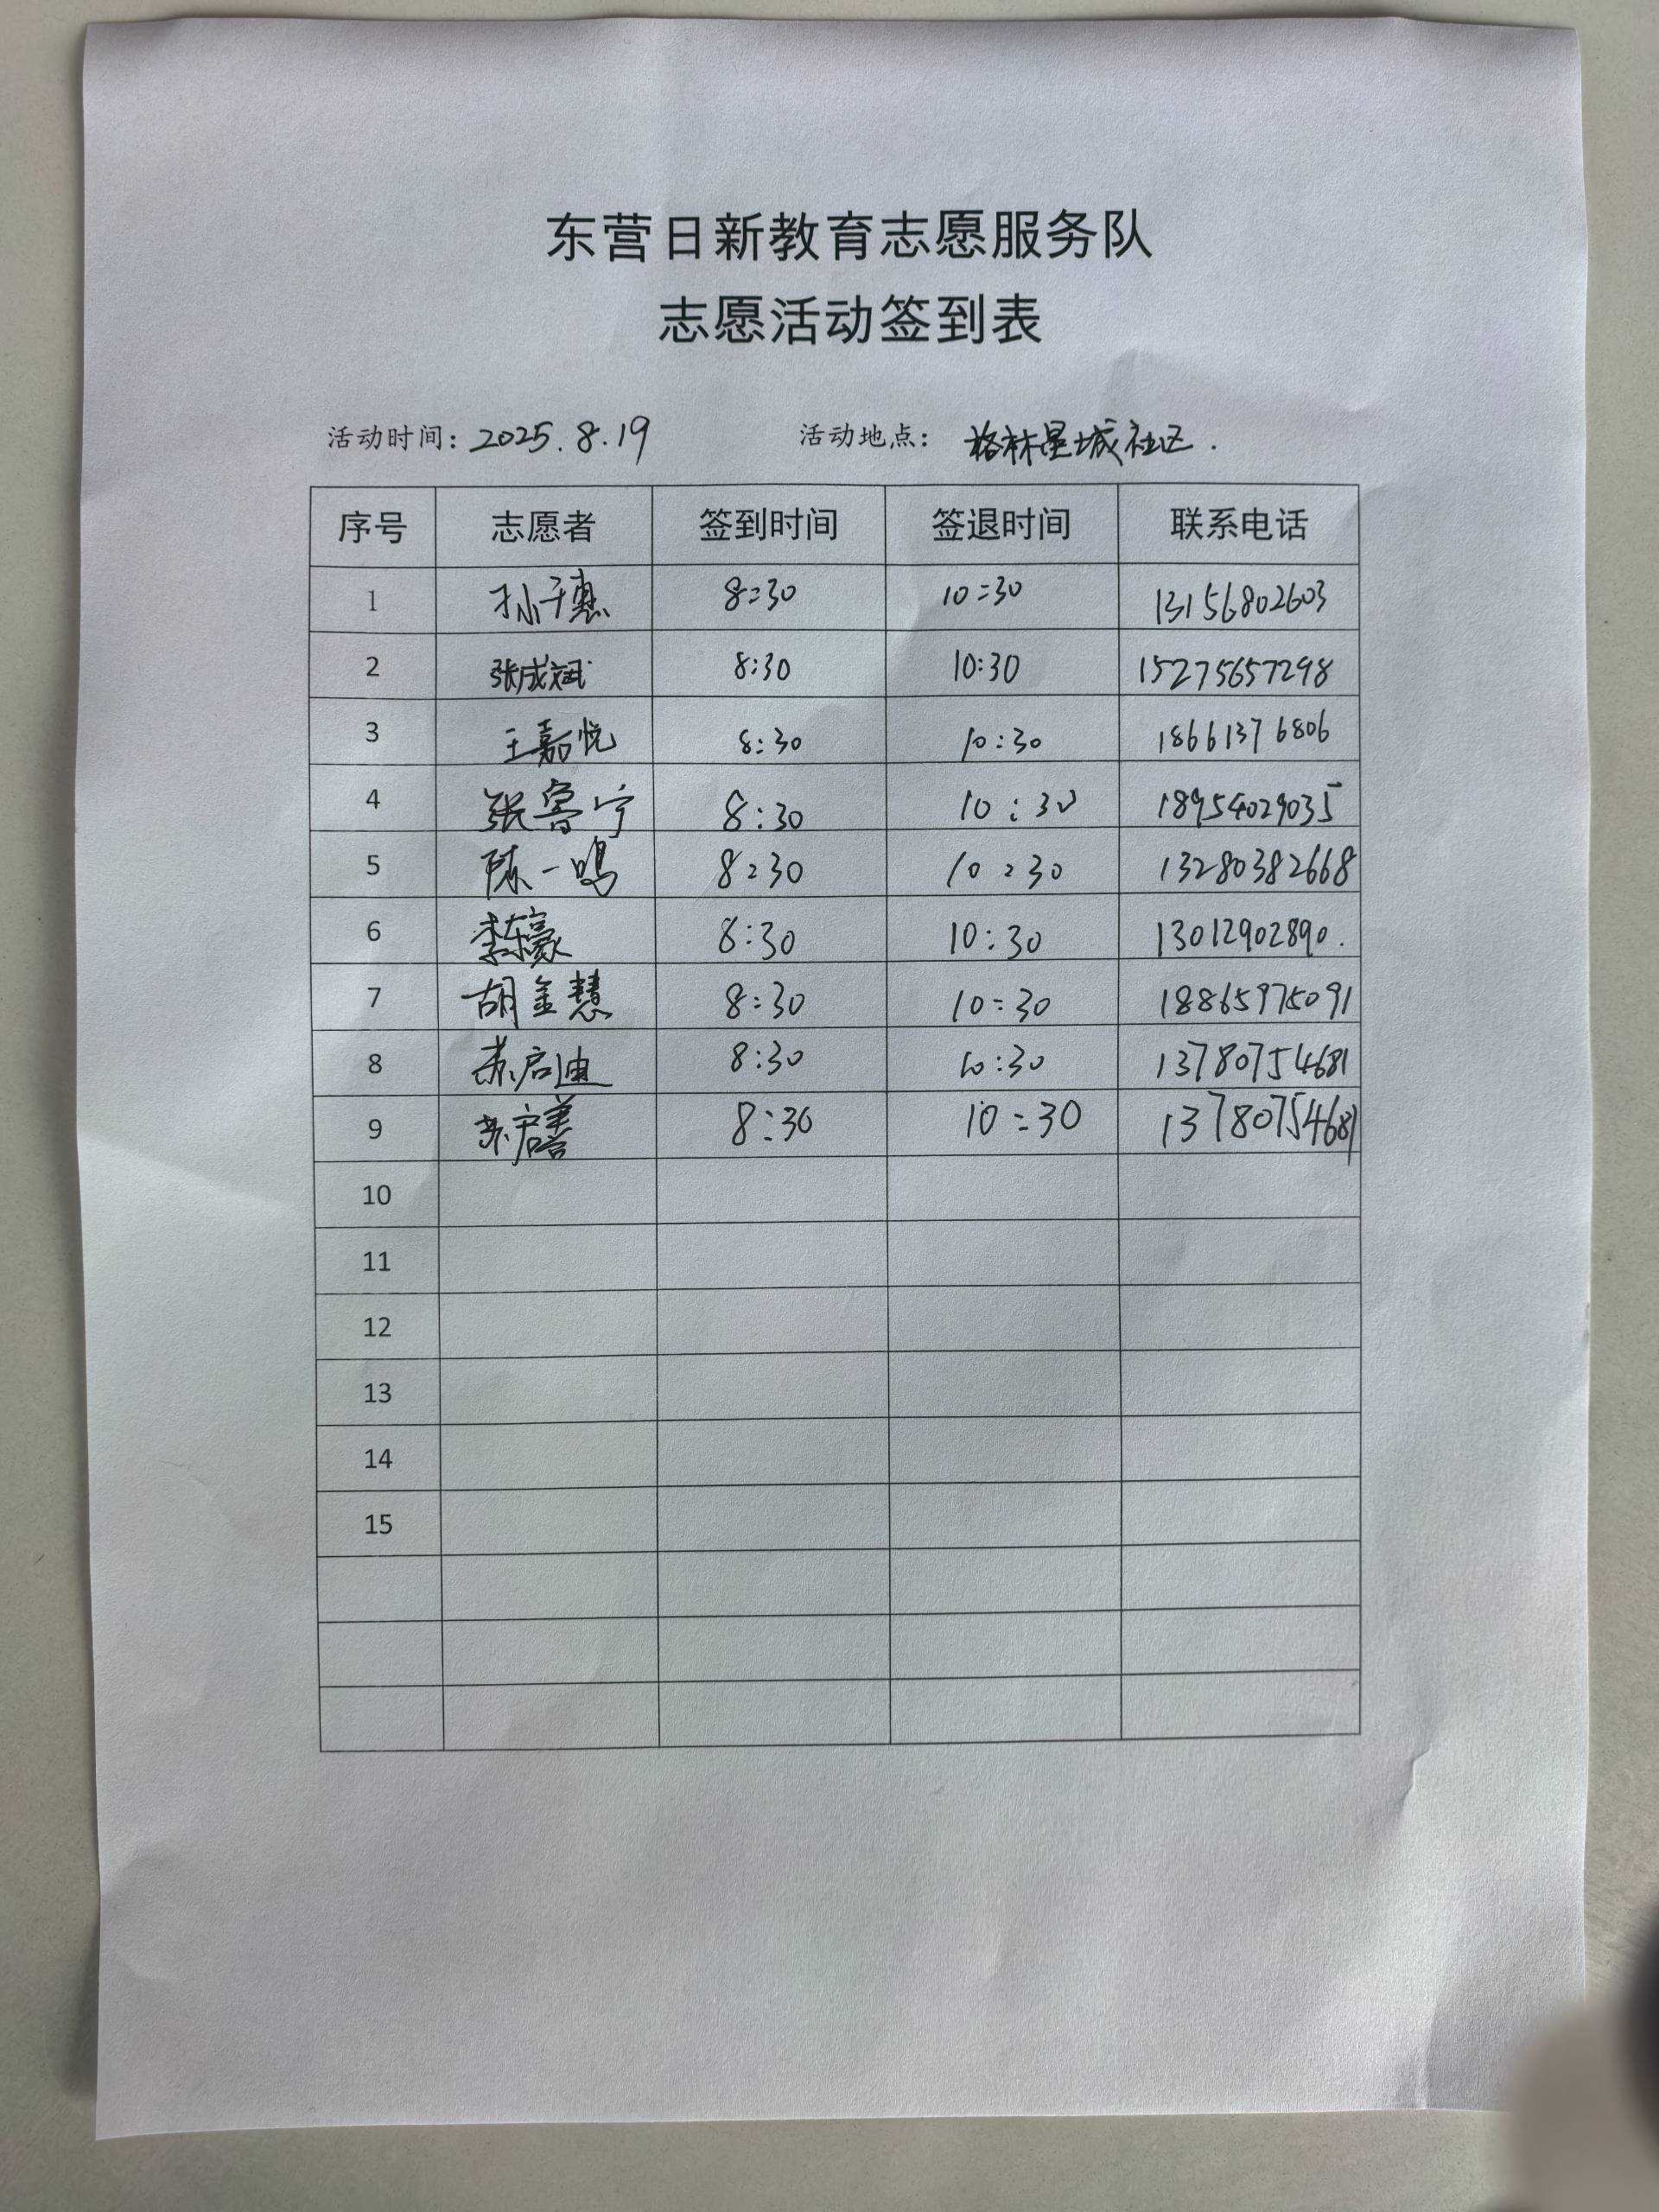 东营日新教育志愿服务队
志愿活动签到表
活动时间：2025.8.19 活动地点：格林星城社区.
序号 志愿者 签到时间 签退时间 联系电话
1 孙千惠 8:30 10:30 13156802603
2 张成斌 8:30 10:30 15275657298
3 王嘉悦 8:30 10:30 18661376806
4 张鲁宁 8:30 10:30 18954029035
5 陈一鸣 8:30 10:30 13280382668
6 李东豪 8:30 10:30 13012902890.
7 胡金慧 8:30 10:30 18865975091
8 苏启迪 8:30 10:30 13780754681
9 苏启善 8:30 10:30 13780754681
10
11
12
13
14
15